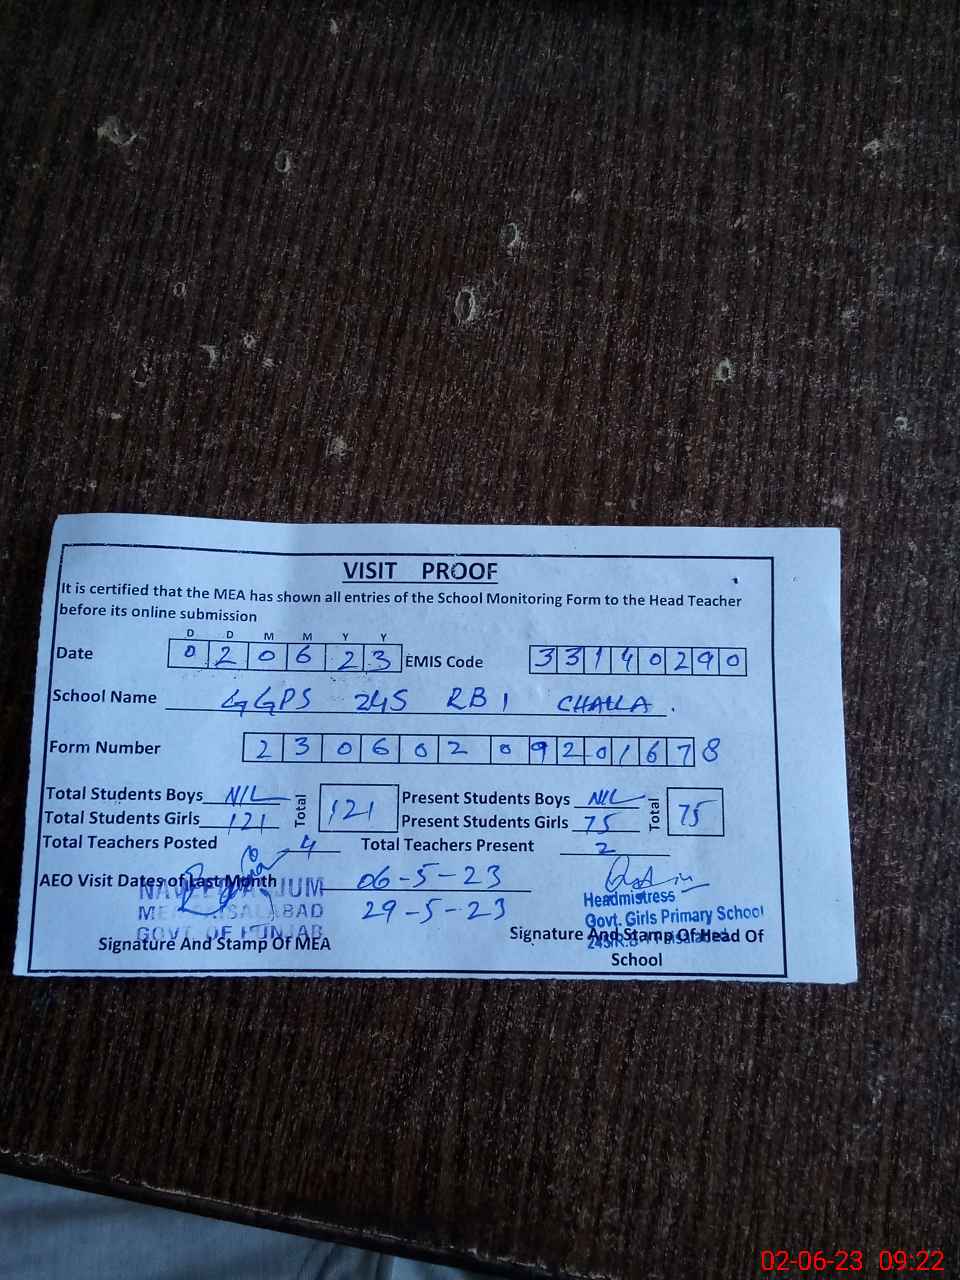 VISIT PROOF
It is certified that the MEA has shown all entries of the School Monitoring Form to the Head Teacher
before its online submission
D D M M Y Y
Date 0 2 0 6 2 3 EMIS Code 3 3 1 4 0 2 9 0
School Name GGPS 245 RB 1 CHALLA .
Form Number 2 3 0 6 0 2 0 9 2 0 1 6 7 8
Total Students Boys NIL Total 121 Present Students Boys NIL Total 75
Total Students Girls 121 Present Students Girls 75
Total Teachers Posted 4 Total Teachers Present 2
AEO Visit Dates of Last Month 06-5-23
29-5-23
GOVT OF PUNJAB
Signature And Stamp Of MEA
Headmistress
Govt. Girls Primary School
Signature And Stamp Of Head Of
School
02-06-23 09:22